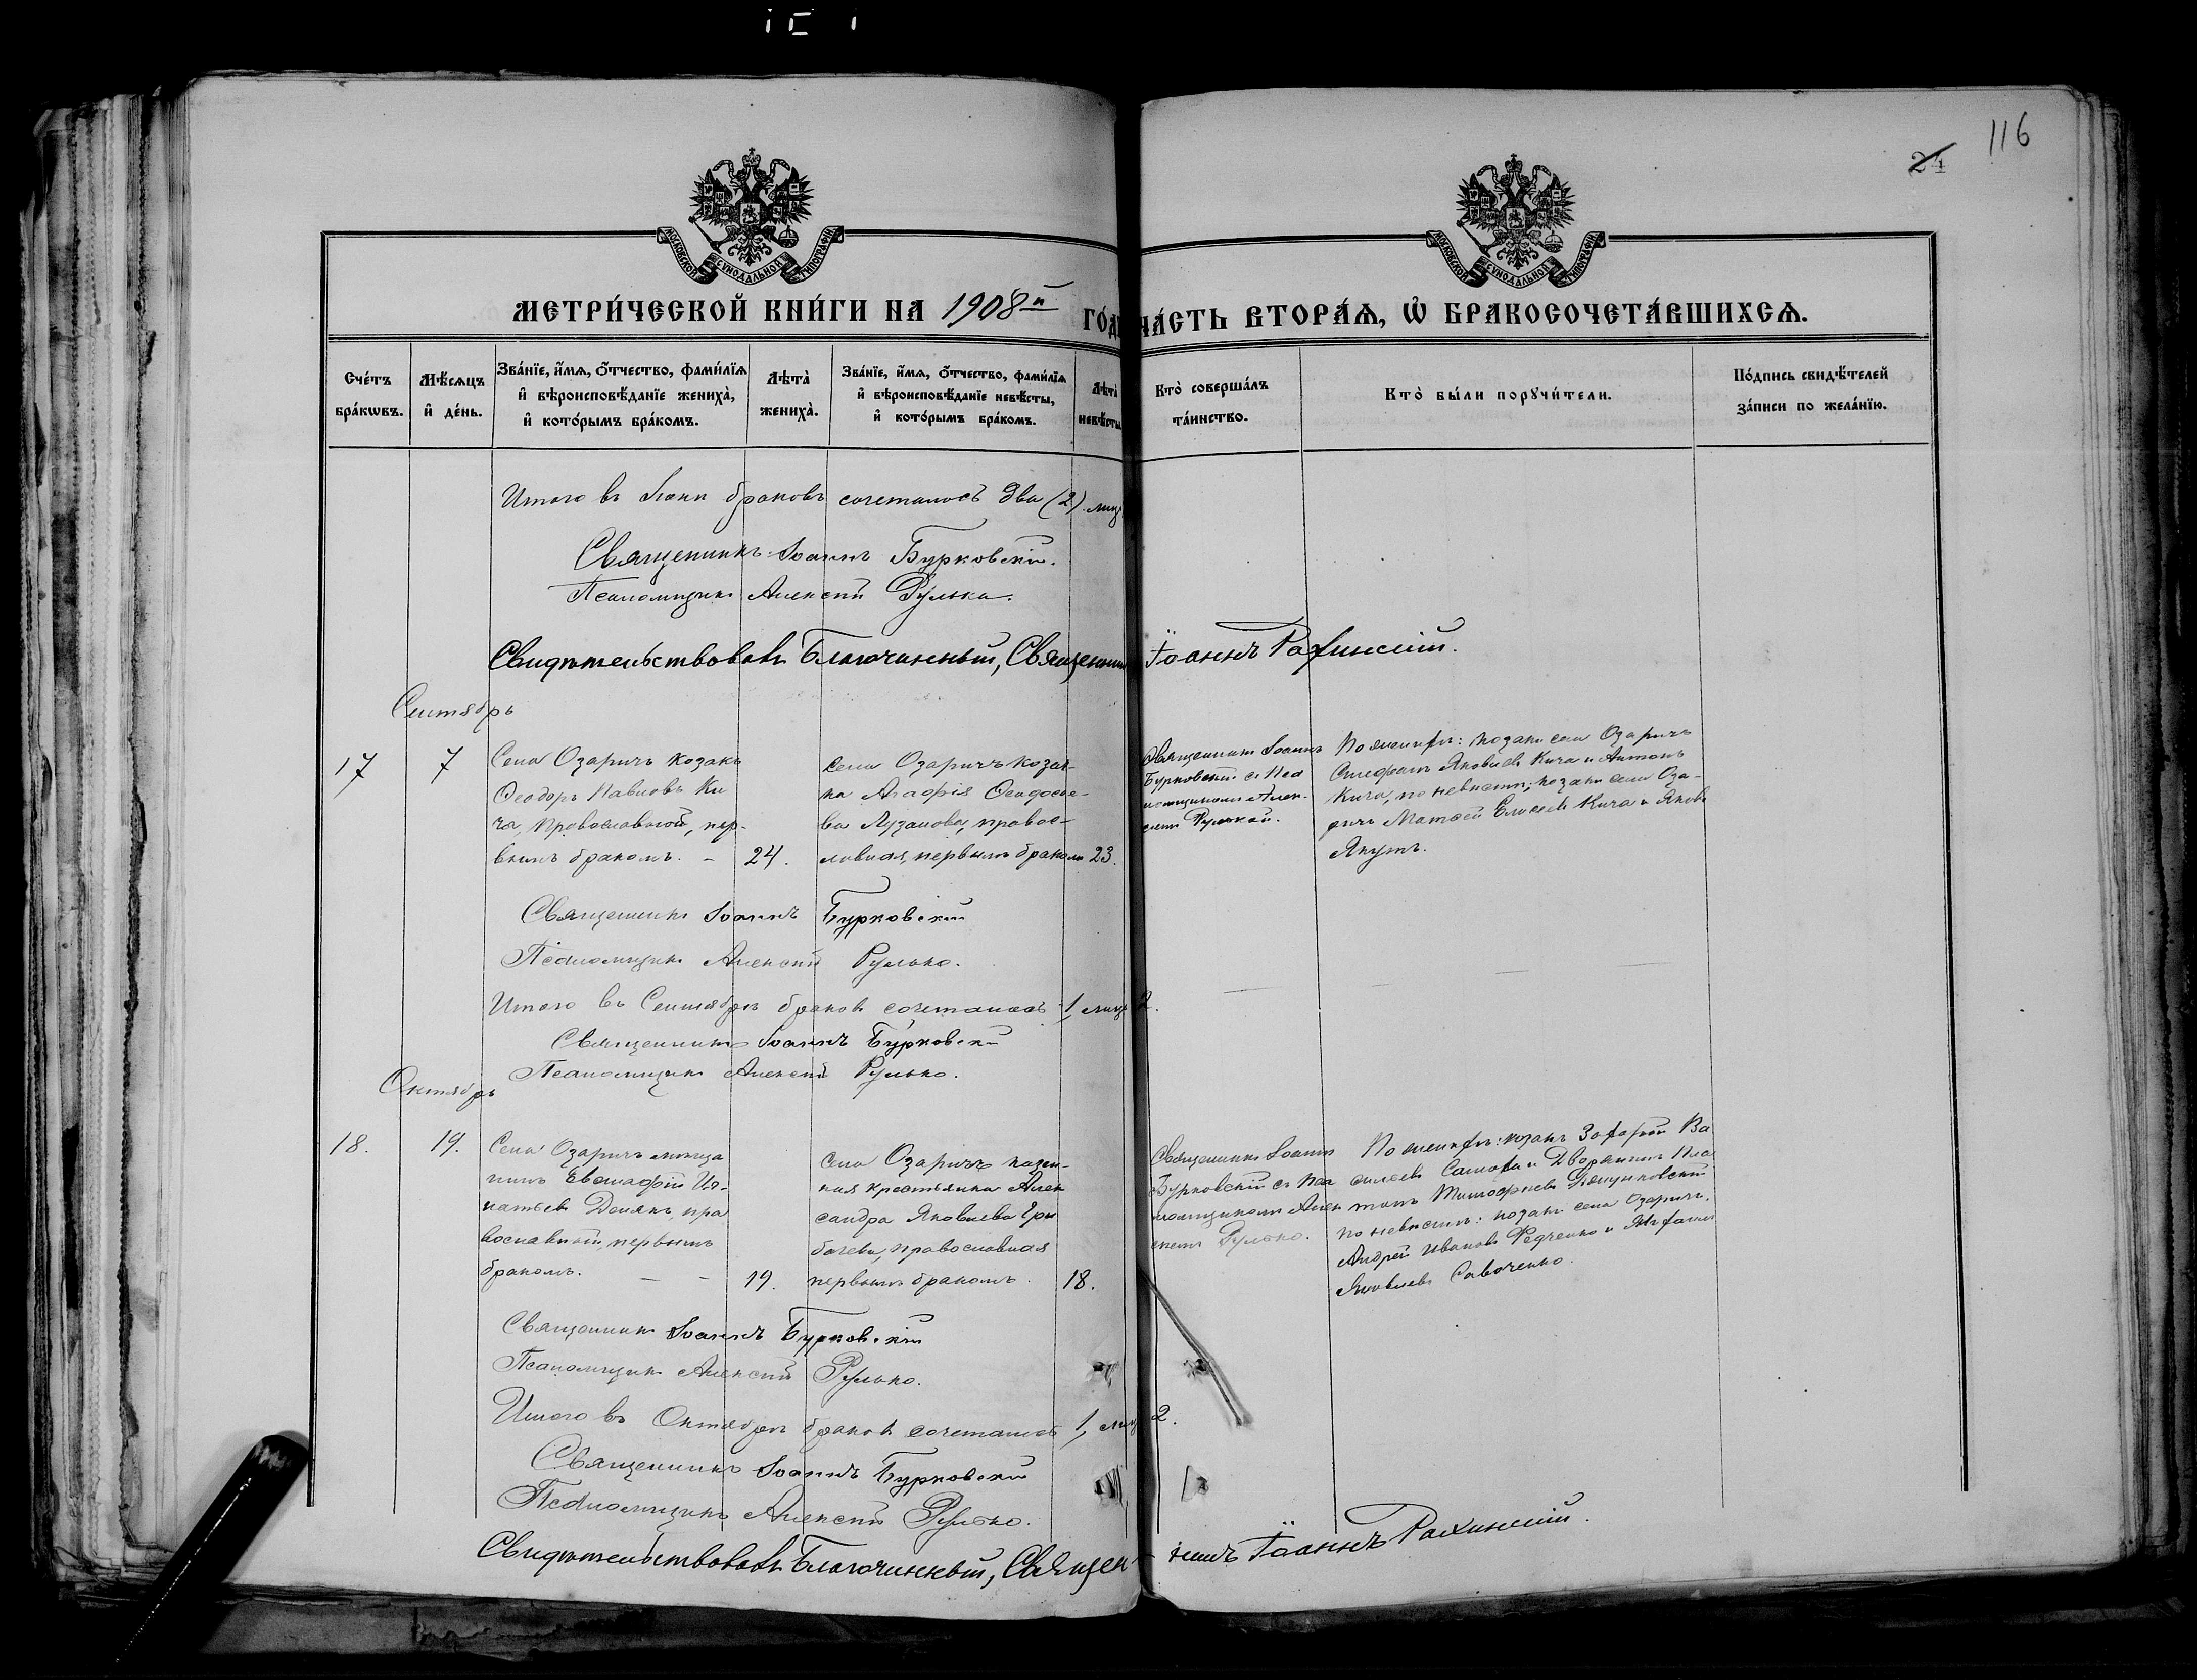 116
24
МОСКОВСКОЙ СѴНОДАЛЬНОЙ ТИПОГРАФІИ
МОСКОВСКОЙ СѴНОДАЛЬНОЙ ТИПОГРАФІИ
МЕТРИ́ЧЕСКОЙ КНИ́ГИ НА 1908й ГО́Д
ЧА́СТЬ ВТОРА́Ѧ, Ѡ҆ БРАКОСОЧЕТА́ВШИХСѦ.
Сче́тъ бра́кѡвъ.
Мѣ́сѧцъ и҆ де́нь.
Зва́нїе, и҆́мѧ, ѻ҆́тчество, фами́лїѧ и҆ вѣроисповѣ́данїе жениха̀, и҆ кото́рымъ бра́комъ.
Лѣта̀ жениха̀.
Зва́нїе, и҆́мѧ, ѻ҆́тчество, фами́лїѧ и҆ вѣроисповѣ́данїе невѣ́сты, и҆ кото́рымъ бра́комъ.
Лѣта̀ невѣ́сты
Кто̀ соверша́лъ та́инство.
Кто̀ бы́ли порꙋчи́тели.
По́дпись свидѣ́телей за́писи по жела́нїю.
Итого въ браковъ сочеталось два (2) лиц
Священникъ Іоаннъ Бурковскій.
Псаломщикъ Алексій Рулько.
Свидѣтельствовалъ Благочинный, Священник Іоаннъ
Сентябрь
17
7
Села Озаричъ козакъ
Ѳеодоръ Павловъ Ки
ча, православной, пер-
вымъ бракомъ. –
24.
Села Озаричъ козач-
ка Агафія Ѳеодосье-
ва Лузанова, правос-
лавная, первымъ бракомъ
23.
Священникъ Іоаннъ
Бурковскій съ Пса
ломщикомъ Алек-
сеем Рулькой.
По женихѣ: козаки села Озаричъ
Яковлев Кича и Антонъ
Кича, по невѣстѣ: козаки села Оза-
ричъ Матвей Кича и Яков
Якутъ.
Священникъ Іоаннъ Бурковскій
Псаломщикъ Алексій Рулько.
Итого въ Сентябрѣ браков сочеталось 1, лиц 2.
Священникъ Іоаннъ Бурковскій
Псаломщикъ Алексій Рулько.
Октябрь
18.
19.
Села Озаричъ мѣща
нинъ Евстафій Иг-
натьев пра
вославный, первымъ
бракомъ. – –
19.
Села Озаричъ казен-
ная крестьянка Алек
сандра Яковлева Гри
бачева, православная
первымъ бракомъ.
18.
Священникъ Іоаннъ
Бурковскій съ Пса
ломщикомъ Алек
сеем Рулько.
По женихѣ: козакъ Захарій Ва
силіевъ и Дворянинъ Пла
тонъ Тимофеевъ
по невѣстѣ: козаки села Озаричъ.
Андрей Иванов Федченко и
Яковлевъ Савоченко.
Священникъ Іоаннъ Бурковскій
Псаломщикъ Алексій Рулько.
Итого въ Октябрѣ браков сочеталось 1, лиц 2.
Священникъ Іоаннъ Бурковскій
Псаломщикъ Алексій Рулько.
Свидѣтельствовалъ Благочинный, Священникъ Іоаннъ